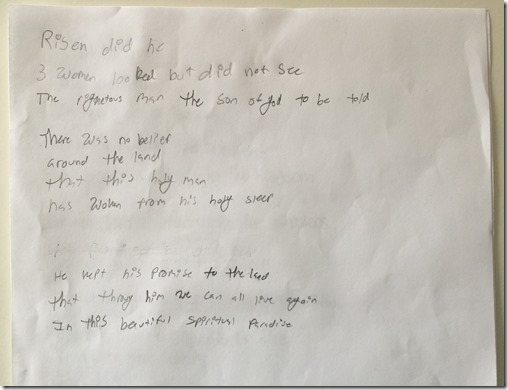 Risen did he
3 women looked but did not see
The righetous man the son of god to be told
There was no belief
around the land
that this holy man
has woken from his holy sleep
He kept his promise to the
that throgy him we can all live again
In this beautiful spiritual Paradise